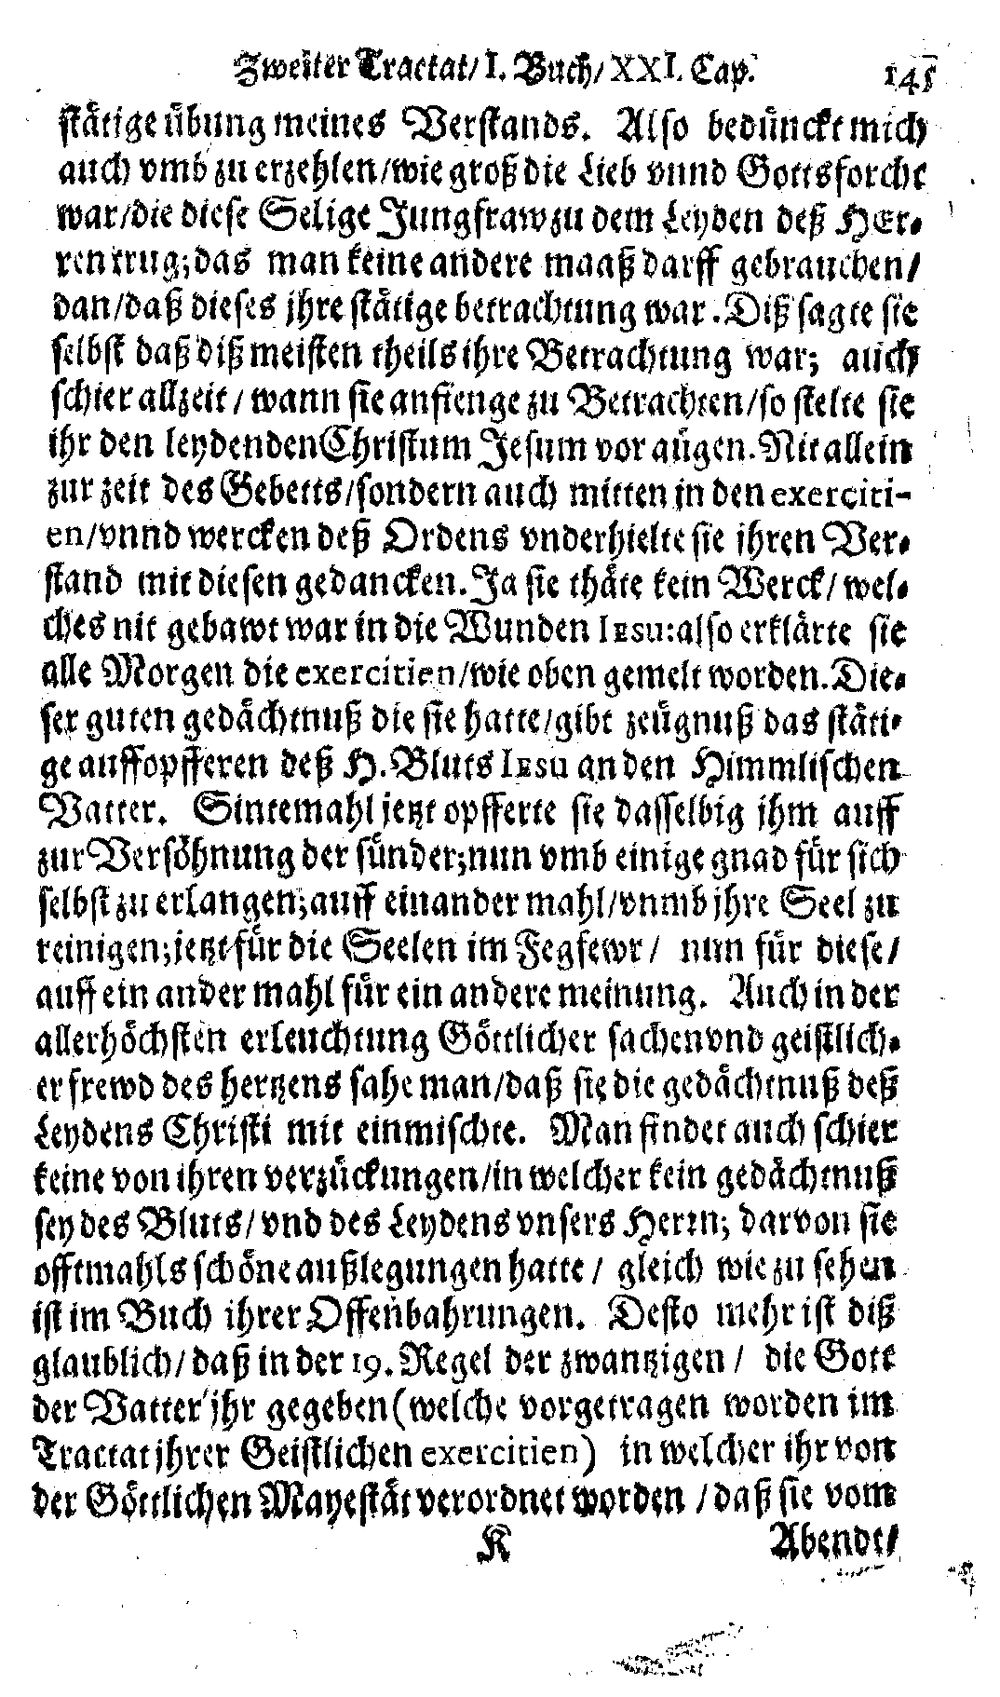 Zweiter Tractat/ I. Buch/ XXI. Cap. 145
stätige übung meines Verstands. Also bedünckt mich
auch vmb zu erzehlen/wie groß die Lieb vnnd Gottsforcht
war/die diese Selige Jungfraw zu dem Leyden deß HEr-
ren trug; das man keine andere maaß darff gebrauchen/
dan/daß dieses jhre stätige betrachtung war. Diß sagte sie
selbst daß diß meisten theils ihre Betrachtung war; auch
schier allzeit/ wann sie anfienge zu Betrachten/so stelte sie
ihr den leydenden Christum Jesum vor augen. Nit allein
zur zeit des Gebetts/sondern auch mitten in den exerciti-
en/vnnd wercken deß Ordens vnderhielte sie ihren Ver-
stand mit diesen gedancken. Ja sie thäte kein Werck/ wel-
ches nit gebawt war in die Wunden IESU: also erklärte sie
alle Morgen die exercitien/wie oben gemelt worden. Die-
ser guten gedächtnuß die sie hatte/gibt zeügnuß das stäti-
ge auffopfferen deß H. Bluts IESU an den Himmlischen
Vatter. Sintemahl jetzt opfferte sie dasselbig jhm auff
zur Versöhnung der sünder; nun vmb einige gnad für sich
selbst zu erlangen; auff ein ander mahl/vnmb jhre Seel zu
reinigen; jetzt für die Seelen im Fegfewr/ nun für diese/
auff ein ander mahl für ein andere meinung. Auch in der
allerhöchsten erleuchtung Göttlicher sachen vnd geistlich-
er frewd des hertzens sahe man/daß sie die gedächtnuß deß
Leydens Christi mit einmischte. Man findet auch schier
keine von ihren verzückungen/in welcher kein gedächtnuß
sey des Bluts/ vnd des Leydens vnsers Herrn; darvon sie
offtmahls schöne außlegungen hatte/ gleich wie zu sehen
ist im Buch ihrer Offenbahrungen. Desto mehr ist diß
glaublich/ daß in der 19. Regel der zwantzigen/ die Gott
der Vatter jhr gegeben (welche vorgetragen worden im
Tractat jhrer Geistlichen exercitien) in welcher ihr von
der Göttlichen Mayestät verordnet worden/ daß sie vom
K Abendt/